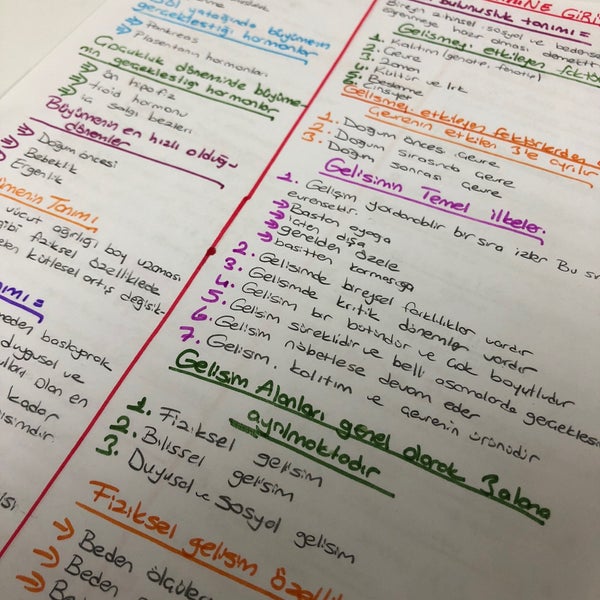 büyümenin
gerçekleştiği hormonlar
Pankreas
Plasentanın hormonları
Çocukluk döneminde büyüme-
nin gerçekleştiği hormonlar
Ön hipofiz
tiroid hormonu
iç salgı bezleri
Büyümenin en hızlı olduğu
dönemler
Doğum öncesi
Bebeklik
Ergenlik
Tanımı
vücut ağırlığı boy uzaması
gibi fiziksel özelliklerde
kütlesel artış değişik-
başlayarak
duygusal ve
olan en
kadar
GİRİ
tanımı =
Bireyin zihinsel sosyal ve bedense
hazır olması
Gelişmeyi etkileyen faktör
1. Kalıtım (genotip. fenotip)
2. Çevre
3. Zaman
4. Kültür ve ırk
5. Beslenme
6. Cinsiyet
Gelişmeyi etkileyen faktörlerden
Çevrenin etkileri 3'e ayrılır
1. Doğum öncesi çevre
2. Doğum sırasında çevre
3. Doğum sonrası çevre
Gelişimin Temel ilkeleri
1. Gelişim yordanabilir bir sıra izler Bu
evrenseldir.
Baştan ayağa
içten dışa
genelden özele
basitten karmaşığa
2. Gelişimde bireysel farklılıklar vardır
3. Gelişimde kritik dönemler vardır
4. Gelişim bir bütündür ve çok boyutludur
5. Gelişim süreklidir ve belli aşamalarda gerçekleşi
6. Gelişim nöbetleşe devam eder
7. Gelişim, kalıtım ve çevrenin ürünüdür
Gelişim Alanları genel olarak 3 alana
ayrılmaktadır
1. Fiziksel gelişim
2. Bilişsel gelişim
3. Duyuşsal ve sosyal gelişim
Fiziksel gelişim özelli
Beden ölçüler
Beden